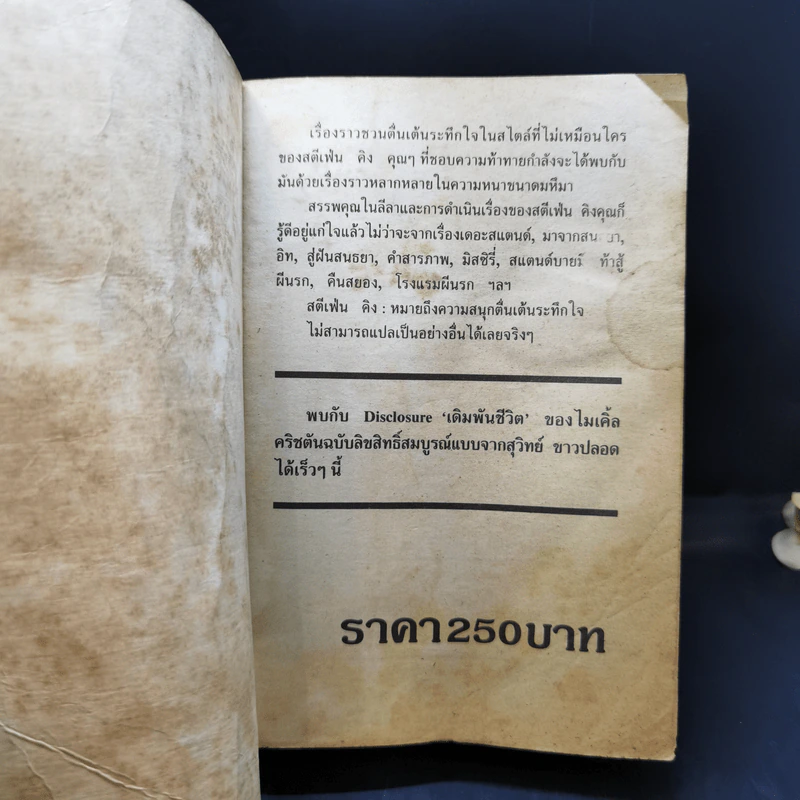 เรื่องราวชวนตื่นเต้นระทึกใจในสไตล์ที่ไม่เหมือนใคร
ของสตีเฟ่น คิง คุณๆ ที่ชอบความท้าทายกำลังจะได้พบกับ
มันด้วยเรื่องราวหลากหลายในความหนาขนาดมหึมา
สรรพคุณในลีลาและการดำเนินเรื่องของสตีเฟ่น คิงคุณก็
รู้ดีอยู่แก่ใจแล้วไม่ว่าจะจากเรื่องเดอะสแตนด์,
อิท, สู่ฝันสนธยา, คำสารภาพ, มิสซิรี่, ท้าสู้
ผีนรก, คืนสยอง, โรงแรมผีนรก ฯลฯ
สตีเฟ่น คิง : หมายถึงความสนุกตื่นเต้นระทึกใจ
ไม่สามารถแปลเป็นอย่างอื่นได้เลยจริงๆ
พบกับ Disclosure ‘เดิมพันชีวิต’ ของไมเคิ้ล
คริชตันฉบับลิขสิทธิ์สมบูรณ์แบบจากสุวิทย์ ขาวปลอด
ได้เร็วๆ นี้
ราคา250บาท